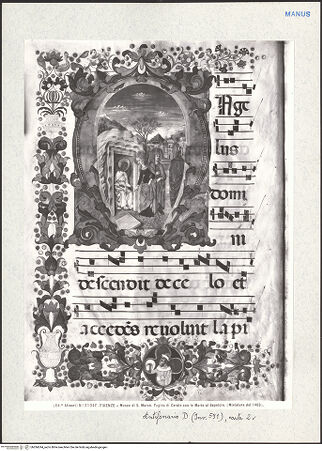 MANUS
Nge
lus
domi
ni
descendit de ce lo et
accedẽs revoluit la pi
FIRENZE - Museo di S. Marco. Pagina di Corale con le Marie al Sepolcro. (Miniatura del
Antifonario D (Inv. 521), carta 2v